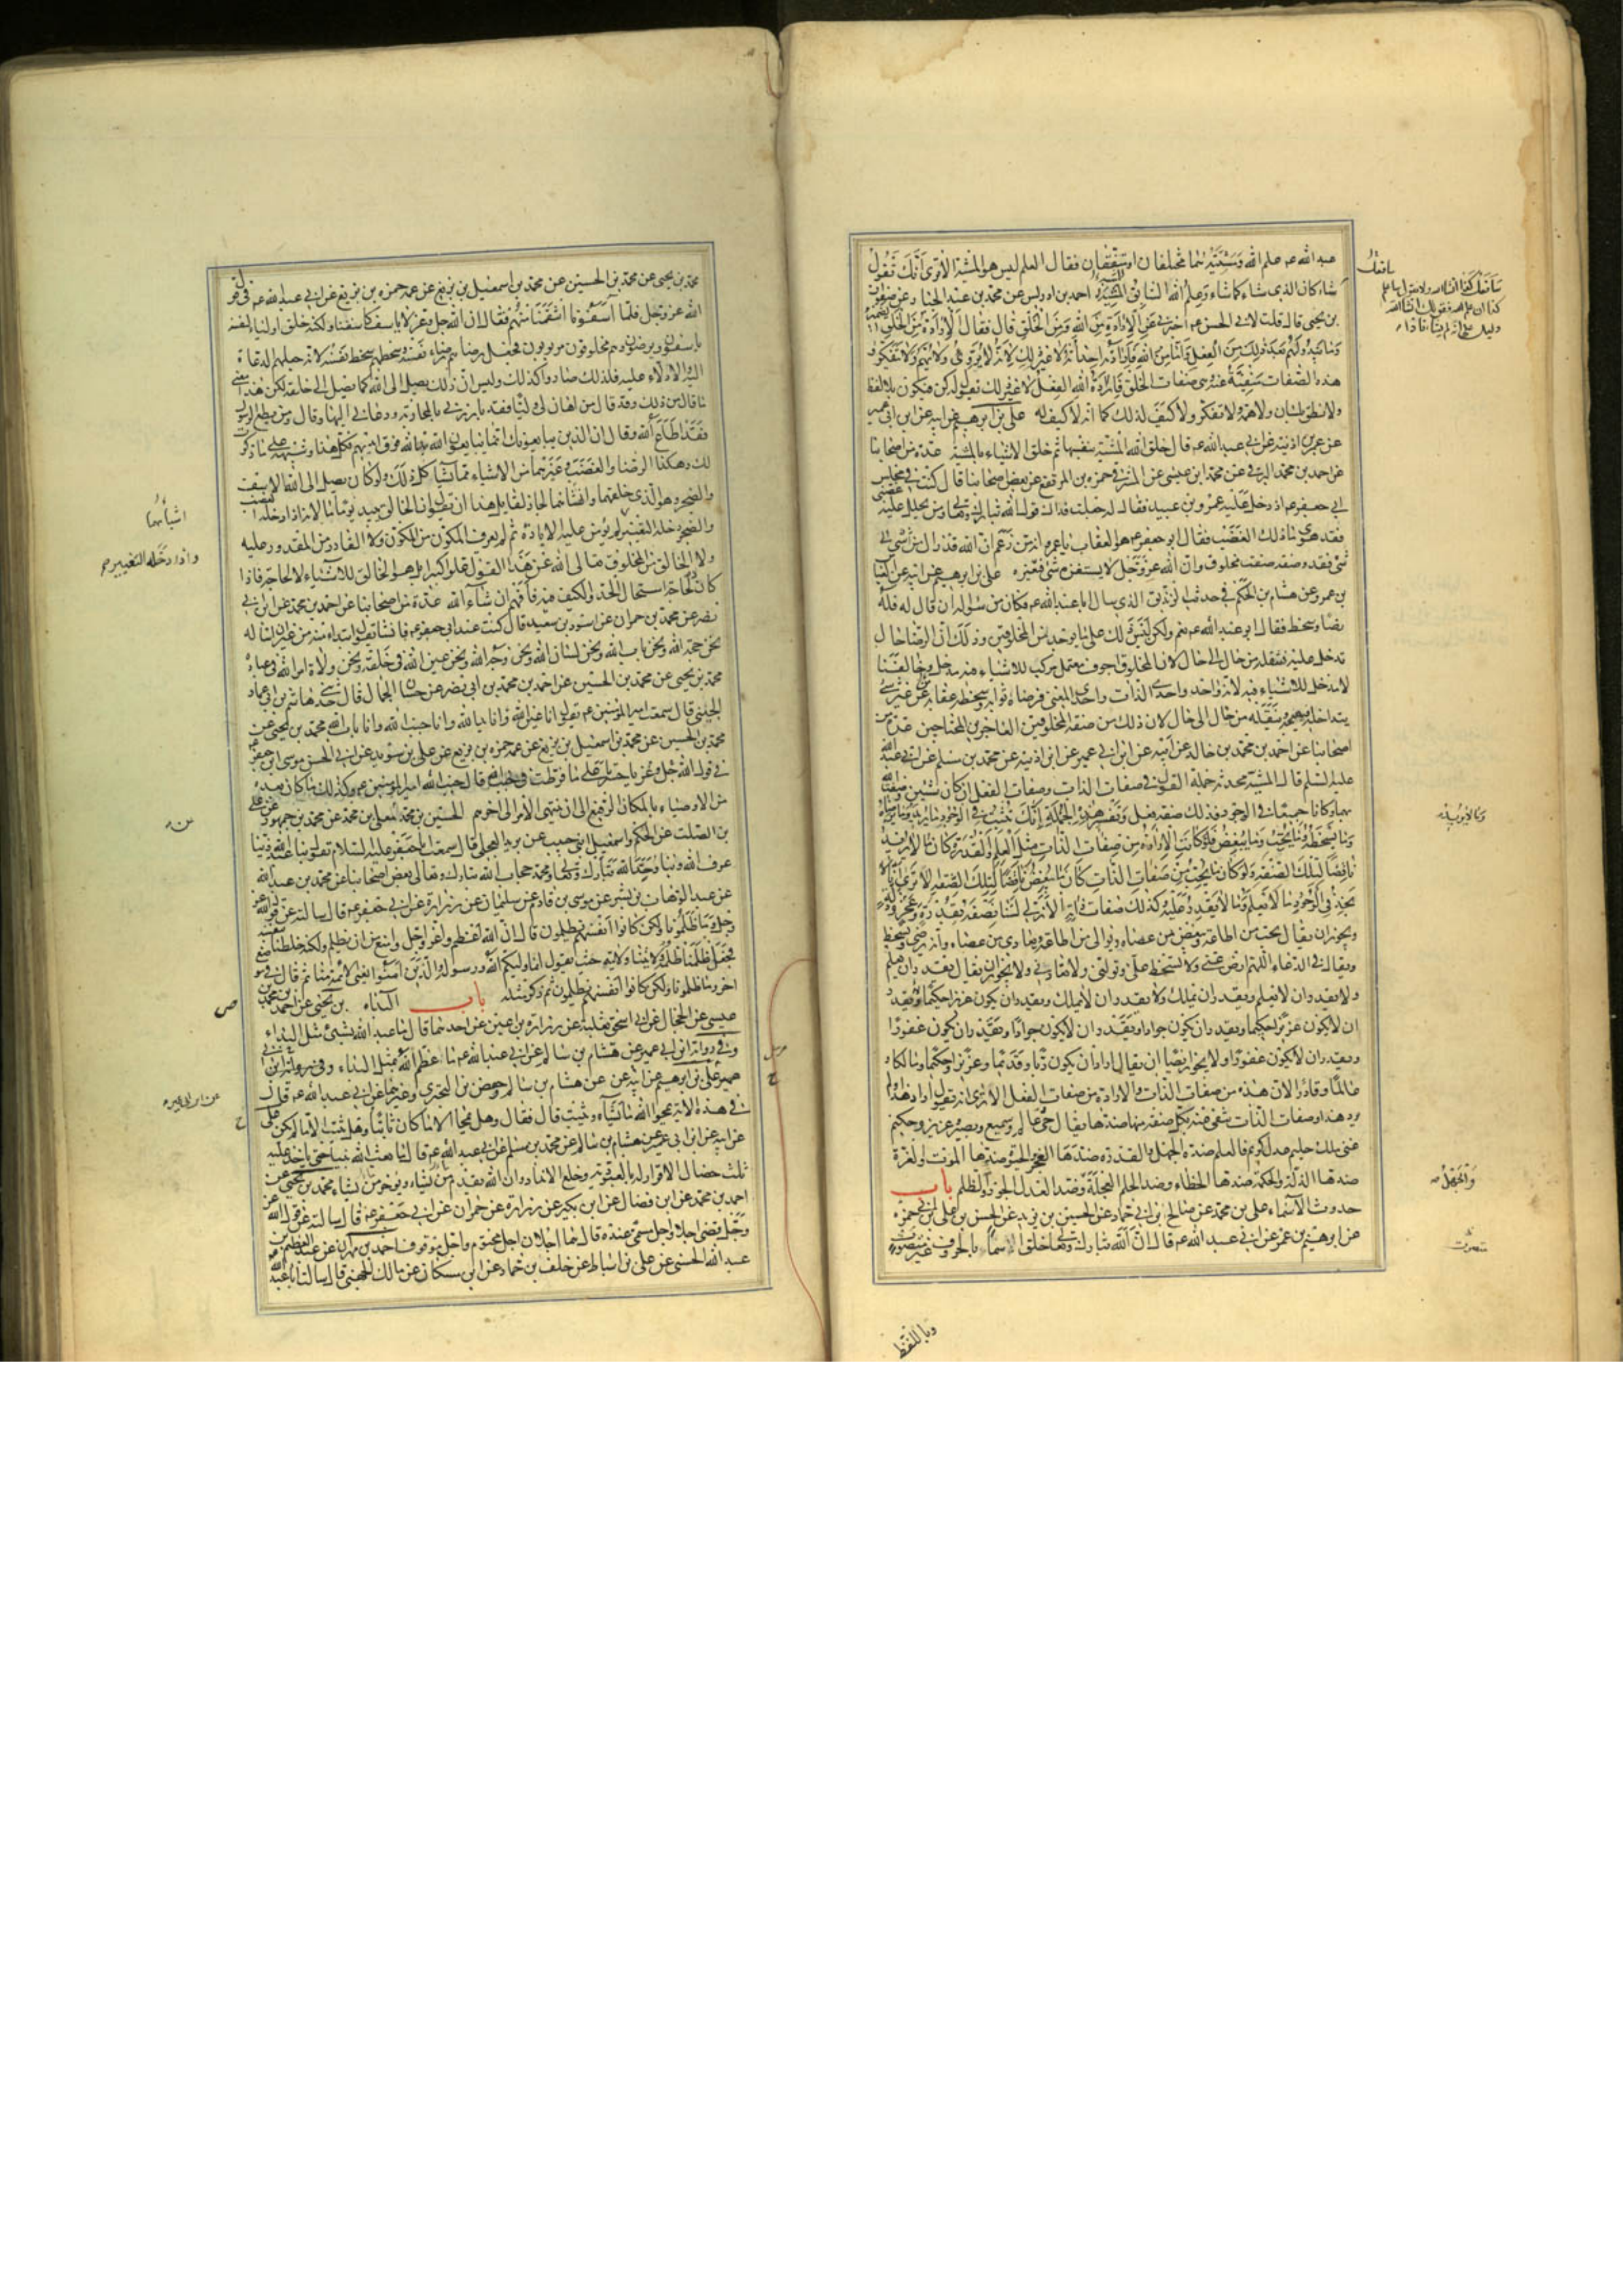 عبد الله عم علم الله ومشيته هما مختلفان او متفقان فقال العلم ليس هو المشية الا ترى انك تقول
سافعل كذا ان شاء الله ولا تقول سافعل
كذا ان علم الله فقولك ان شاء الله
دليل على انه لم يشأ فاذا
شاء كان الذي شاء كما شاء وعلم الله السابق المشية احمد بن ادريس عن محمد بن عبد الجبار عن صفوان
بن يحيى قال قلت لابي الحسن عم اخبرني عن الارادة من الله ومن الخلق قال فقال الارادة من الخلق الضمير
وما يبدو لهم بعد ذلك من الفعل واما من الله فارادته احداثه لا غير ذلك لانه لا يروي ولا يهم ولا يتفكر و
هذه الصفات منفية عنه وهي صفات الخلق فارادة الله الفعل لا غير ذلك يقول له كن فيكون بلا لفظ
ولا نطق بلسان ولا همة ولا تفكر ولا كيف لذلك كما انه لا كيف له علي بن ابرهيم عن ابيه عن ابن ابي عمير
عن عمر بن اذينة عن ابي عبد الله عم قال خلق الله المشية بنفسها ثم خلق الاشياء بالمشية عدة من اصحابنا
عن احمد بن محمد البرقي عن محمد بن عيسى عن المشرقي حمزه بن المرتفع عن بعض اصحابنا قال كنت في مجلس
ابي جعفر عم اذ دخل عليه عمرو بن عبيد فقال له جعلت فداك قول الله تبارك وتعالى ومن يحلل عليه غضبي
فقد هوى ما ذلك الغضب فقال ابو جعفر عم هو العقاب يا عمرو انه من زعم ان الله قد زال من شي الى
شي فقد وصفه صفة مخلوق وان الله عز وجل لا يستفزه شي فيغيره علي بن ابرهيم عن ابيه عن العباس
بن عمرو عن هشام بن الحكم في حديث الزنديق الذي سال ابا عبد الله عم فكان من سؤاله ان قال له فله
رضا وسخط فقال ابو عبد الله عم نعم ولكن ليس ذلك على ما يوجد من المخلوقين وذلك ان الرضا حال
تدخل عليه فتنقله من حال الى حال لان المخلوق اجوف معتمل مركب للاشياء فيه مدخل وخالقنا
لا مدخل للاشياء فيه لانه واحد واحدي الذات واحدي المعنى فرضاه ثوابه وسخطه عقابه من غير شي
يتداخله فيهيجه وينقله من حال الى حال لان ذلك من صفة المخلوقين العاجزين المحتاجين عدة من
اصحابنا عن احمد بن محمد بن خالد عن ابيه عن ابن ابي عمير عن ابن اذينة عن محمد بن مسلم عن ابي عبد الله
عليه السلم قال المشية محدثة جملة القول في صفات الذات وصفات الفعل ان كل شيئين وصفت الله
بهما وكانا جميعا في الوجود فذلك صفة فعل وتفسير هذه الجملة انك تثبت في الوجود ما يريد وما لا يريد وما يرضاه
وما يسخطه وما يحب وما يبغض فلو كانت الارادة من صفات الذات مثل العلم والقدرة كان ما لا يريد
ناقضا لتلك الصفة ولو كان ما يحب من صفات الذات كان ما يبغض ناقضا لتلك الصفة الا ترى انا لا
نجد في الوجود ما لا يعلم وما لا يقدر عليه وكذلك صفات ذاته الازلي لسنا نصفه بقدرة وعجز وذلة
ويجوز ان يقال يحب من اطاعه ويبغض من عصاه ويوالي من اطاعه ويعادي من عصاه وانه يرضى ويسخط
ويقال في الدعاء اللهم ارض عني ولا تسخط علي وتولني ولا تعادني ولا يجوز ان يقال يقدر ان يعلم
ولا يقدر ان لا يعلم ويقدر ان يملك ولا يقدر ان لا يملك ويقدر ان يكون عزيزا حكيما ولا يقدر
ان لا يكون عزيزا حكيما ويقدر ان يكون جوادا ولا يقدر ان لا يكون جوادا ويقدر ان يكون غفورا
ويقدر ان لا يكون غفورا ولا يجوز ايضا ان يقال اراد ان يكون ربا وقديما وعزيزا وحكيما ومالكا و
عالما وقادرا لان هذه من صفات الذات والارادة من صفات الفعل الا ترى انه يقول اراد هذا ولم
يرد هذا وصفات الذات تنفي عنه بكل صفة منها ضدها يقال حي عالم وسميع وبصير وعزيز وحكيم
غني ملك حليم عدل كريم فالعلم ضده الجهل والقدرة ضدها العجز والحيوة ضدها الموت والعزة
ضدها الذلة والحكمة ضدها الخطاء وضد الحلم العجلة وضد العدل الجور والظلم باب
والجهل
حدوث الاسماء علي بن محمد عن صالح بن ابي حماد عن الحسين بن يزيد عن الحسن بن علي بن ابي حمزه
عن ابرهيم بن عمر عن ابي عبد الله عم قال ان الله تبارك وتعالى خلق اسما بالحروف غير متصوت
وباللفظ
محمد بن يحيى عن محمد بن الحسين عن محمد بن اسمعيل بن بزيع عن عمه حمزه بن بزيع عن ابي عبد الله عم في قول
الله عز وجل فلما آسفونا انتقمنا منهم فقال ان الله جل وعز لا ياسف كاسفنا ولكنه خلق اولياء لنفسه
ياسفون ويرضون وهم مخلوقون مربوبون فجعل رضاهم رضاء نفسه وسخطهم سخط نفسه لانه جعلهم الدعاة
اليه والادلاء عليه فلذلك صاروا كذلك وليس ان ذلك يصل الى الله كما يصل الى خلقه لكن هذا معنى
ما قال من ذلك وقد قال من اهان لي وليا فقد بارزني بالمحاربة ودعاني اليها وقال ومن يطع الرسول
فقد اطاع الله وقال ان الذين يبايعونك انما يبايعون الله يد الله فوق ايديهم فكل هذا وشبهه على ما ذكرت
لك وهكذا الرضا والغضب وغيرهما من الاشياء مما يشاكل ذلك ولو كان يصل الى الله الاسف
والضجر وهو الذي خلقهما وانشاهما لجاز لقايل هذا ان يقول ان الخالق يبيد يوما ما لانه اذا دخله الغضب
والضجر دخله التغيير لم يؤمن عليه الابادة ثم لم يعرف المكون من المكون ولا القادر من المقدور عليه
واذا دخله التغيير
ولا الخالق من المخلوق تعالى الله عن هذا القول علوا كبيرا بل هو الخالق للاشياء لا لحاجة فاذا
كان لا لحاجة استحال الحد والكيف فيه فافهم ان شاء الله عدة من اصحابنا عن احمد بن محمد عن ابن ابي
نصر عن محمد بن حمران عن اسود بن سعيد قال كنت عند ابي جعفر عم فانشا يقول ابتداء منه من غير ان اساله
نحن حجة الله ونحن باب الله ونحن لسان الله ونحن وجه الله ونحن عين الله في خلقه ونحن ولاة امر الله في عباده
محمد بن يحيى عن محمد بن الحسين عن احمد بن محمد بن ابي نصر عن حسان الجمال قال حدثني هاشم بن ابي عماد
الجنبي قال سمعت امير المؤمنين عم يقول انا عين الله وانا يد الله وانا جنب الله وانا باب الله محمد بن يحيى عن
محمد بن الحسين عن محمد بن اسمعيل بن بزيع عن عمه حمزه بن بزيع عن علي بن سويد عن ابي الحسن موسى بن جعفر عم
في قول الله جل وعز يا حسرتا على ما فرطت في جنب الله قال جنب الله امير المؤمنين عم وكذلك ما كان بعده
من الاوصياء بالمكان الرفيع الى ان ينتهي الامر الى اخرهم الحسين بن محمد عن معلى بن محمد عن محمد بن جمهور عن علي
بن الصلت عن الحكم واسمعيل ابني حبيب عن بريد العجلي قال سمعت ابا جعفر عليه السلام يقول بنا عبد الله وبنا
عرف الله وبنا وحد الله تبارك وتعالى ومحمد حجاب الله تبارك وتعالى بعض اصحابنا عن محمد بن عبد الله
عن عبد الوهاب بن بشر عن موسى بن قادم عن سليمان عن زرارة عن ابي جعفر عم قال سالته عن قول الله عز
وجل وما ظلمونا ولكن كانوا انفسهم يظلمون قال ان الله اعظم واعز واجل وامنع من ان يظلم ولكنه خلطنا بنفسه
فجعل ظلمنا ظلمه وولايتنا ولايته حيث يقول انما وليكم الله ورسوله والذين آمنوا يعني الائمة منا ثم قال في موضع
اخر وما ظلمونا ولكن كانوا انفسهم يظلمون ثم ذكر مثله باب البداء محمد بن يحيى عن احمد بن محمد بن
عيسى عن الحجال عن ابي اسحق ثعلبة عن زرارة بن اعين عن احدهما قال ما عبد الله بشيء مثل البداء
وفي رواية ابن ابي عمير عن هشام بن سالم عن ابي عبد الله عم ما عظم الله بمثل البداء
علي بن ابرهيم عن ابيه عن هشام بن سالم وحفص بن البختري وغيرهما عن ابي عبد الله عم قال
عن ابن ابي عمير
في هذه الآية يمحوا الله ما يشاء ويثبت قال فقال وهل يمحى الا ما كان ثابتا وهل يثبت الا ما لم يكن علي
عن ابيه عن ابن ابي عمير عن هشام بن سالم عن محمد بن مسلم عن ابي عبد الله عم قال ما بعث الله نبيا حتى ياخذ عليه
ثلث خصال الاقرار له بالعبودية وخلع الانداد وان الله يقدم من يشاء ويوخر من يشاء محمد بن يحيى عن
احمد بن محمد عن ابن فضال عن ابن بكير عن زرارة عن حمران عن ابي جعفر عم قال سالته عن قول الله عز
وجل قضى اجلا واجل مسمى عنده قال هما اجلان اجل محتوم واجل موقوف احمد بن مهران عن عبد العظيم بن
عبد الله الحسني عن علي بن اسباط عن خلف بن حماد عن ابن مسكان عن مالك الجهني قال سالت ابا عبد الله